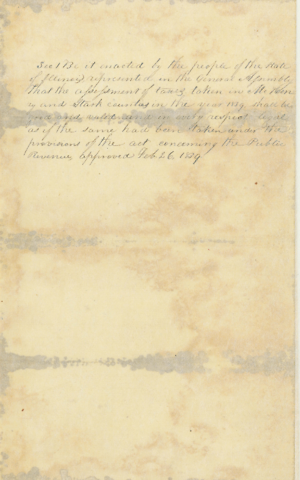 Sec 1 Be it enacted by the people of the State
of Illinois represented in the General Assembly
that the assessment of taxes taken in McHen
ry and Stark counties in the year 1839 shall be
and in every respect legal
as if the same had been taken under the
provisions of the act concerning the Public
Revenue, approved Feb 26. 1839